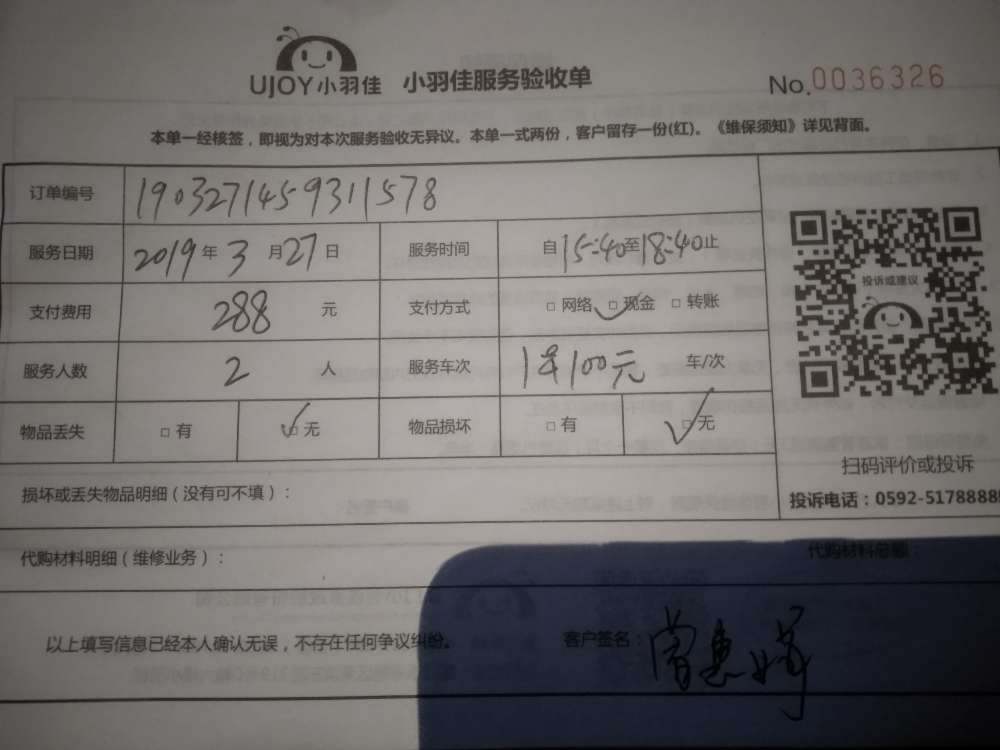 UJOY小羽佳 小羽佳服务验收单 No.0036326
本单一经核签，即视为对本次服务验收无异议。本单一式两份，客户留存一份(红)。《维保须知》详见背面。
订单编号 1903271459311578
服务日期 2019年3月27日 服务时间 自15:40至18:40止
投诉或建议
支付费用 288 元 支付方式 □网络 □✓现金 □转账
服务人数 2 人 服务车次 1车100元 车/次
物品丢失 □有 □✓无 物品损坏 □有 □✓无
扫码评价或投诉
损坏或丢失物品明细（没有可不填）：
投诉电话：0592-5178888
代购材料明细（维修业务）： 代购材料总额：
以上填写信息已经本人确认无误，不存在任何争议纠纷。 客户签名：曾惠婷